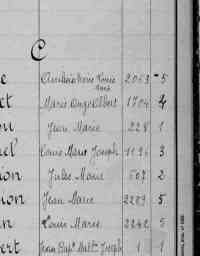 C
e Marie Louise 2053 5
et Marie Ange Albert 1704 4
ou Jean Marie 228 1
el Louis Marie Joseph 1194 3
ion Jules Marie 507 2
ion Jean Marie 2289 5
n Louis Marie 2242 5
vert Jean Bapt Joseph 1 1